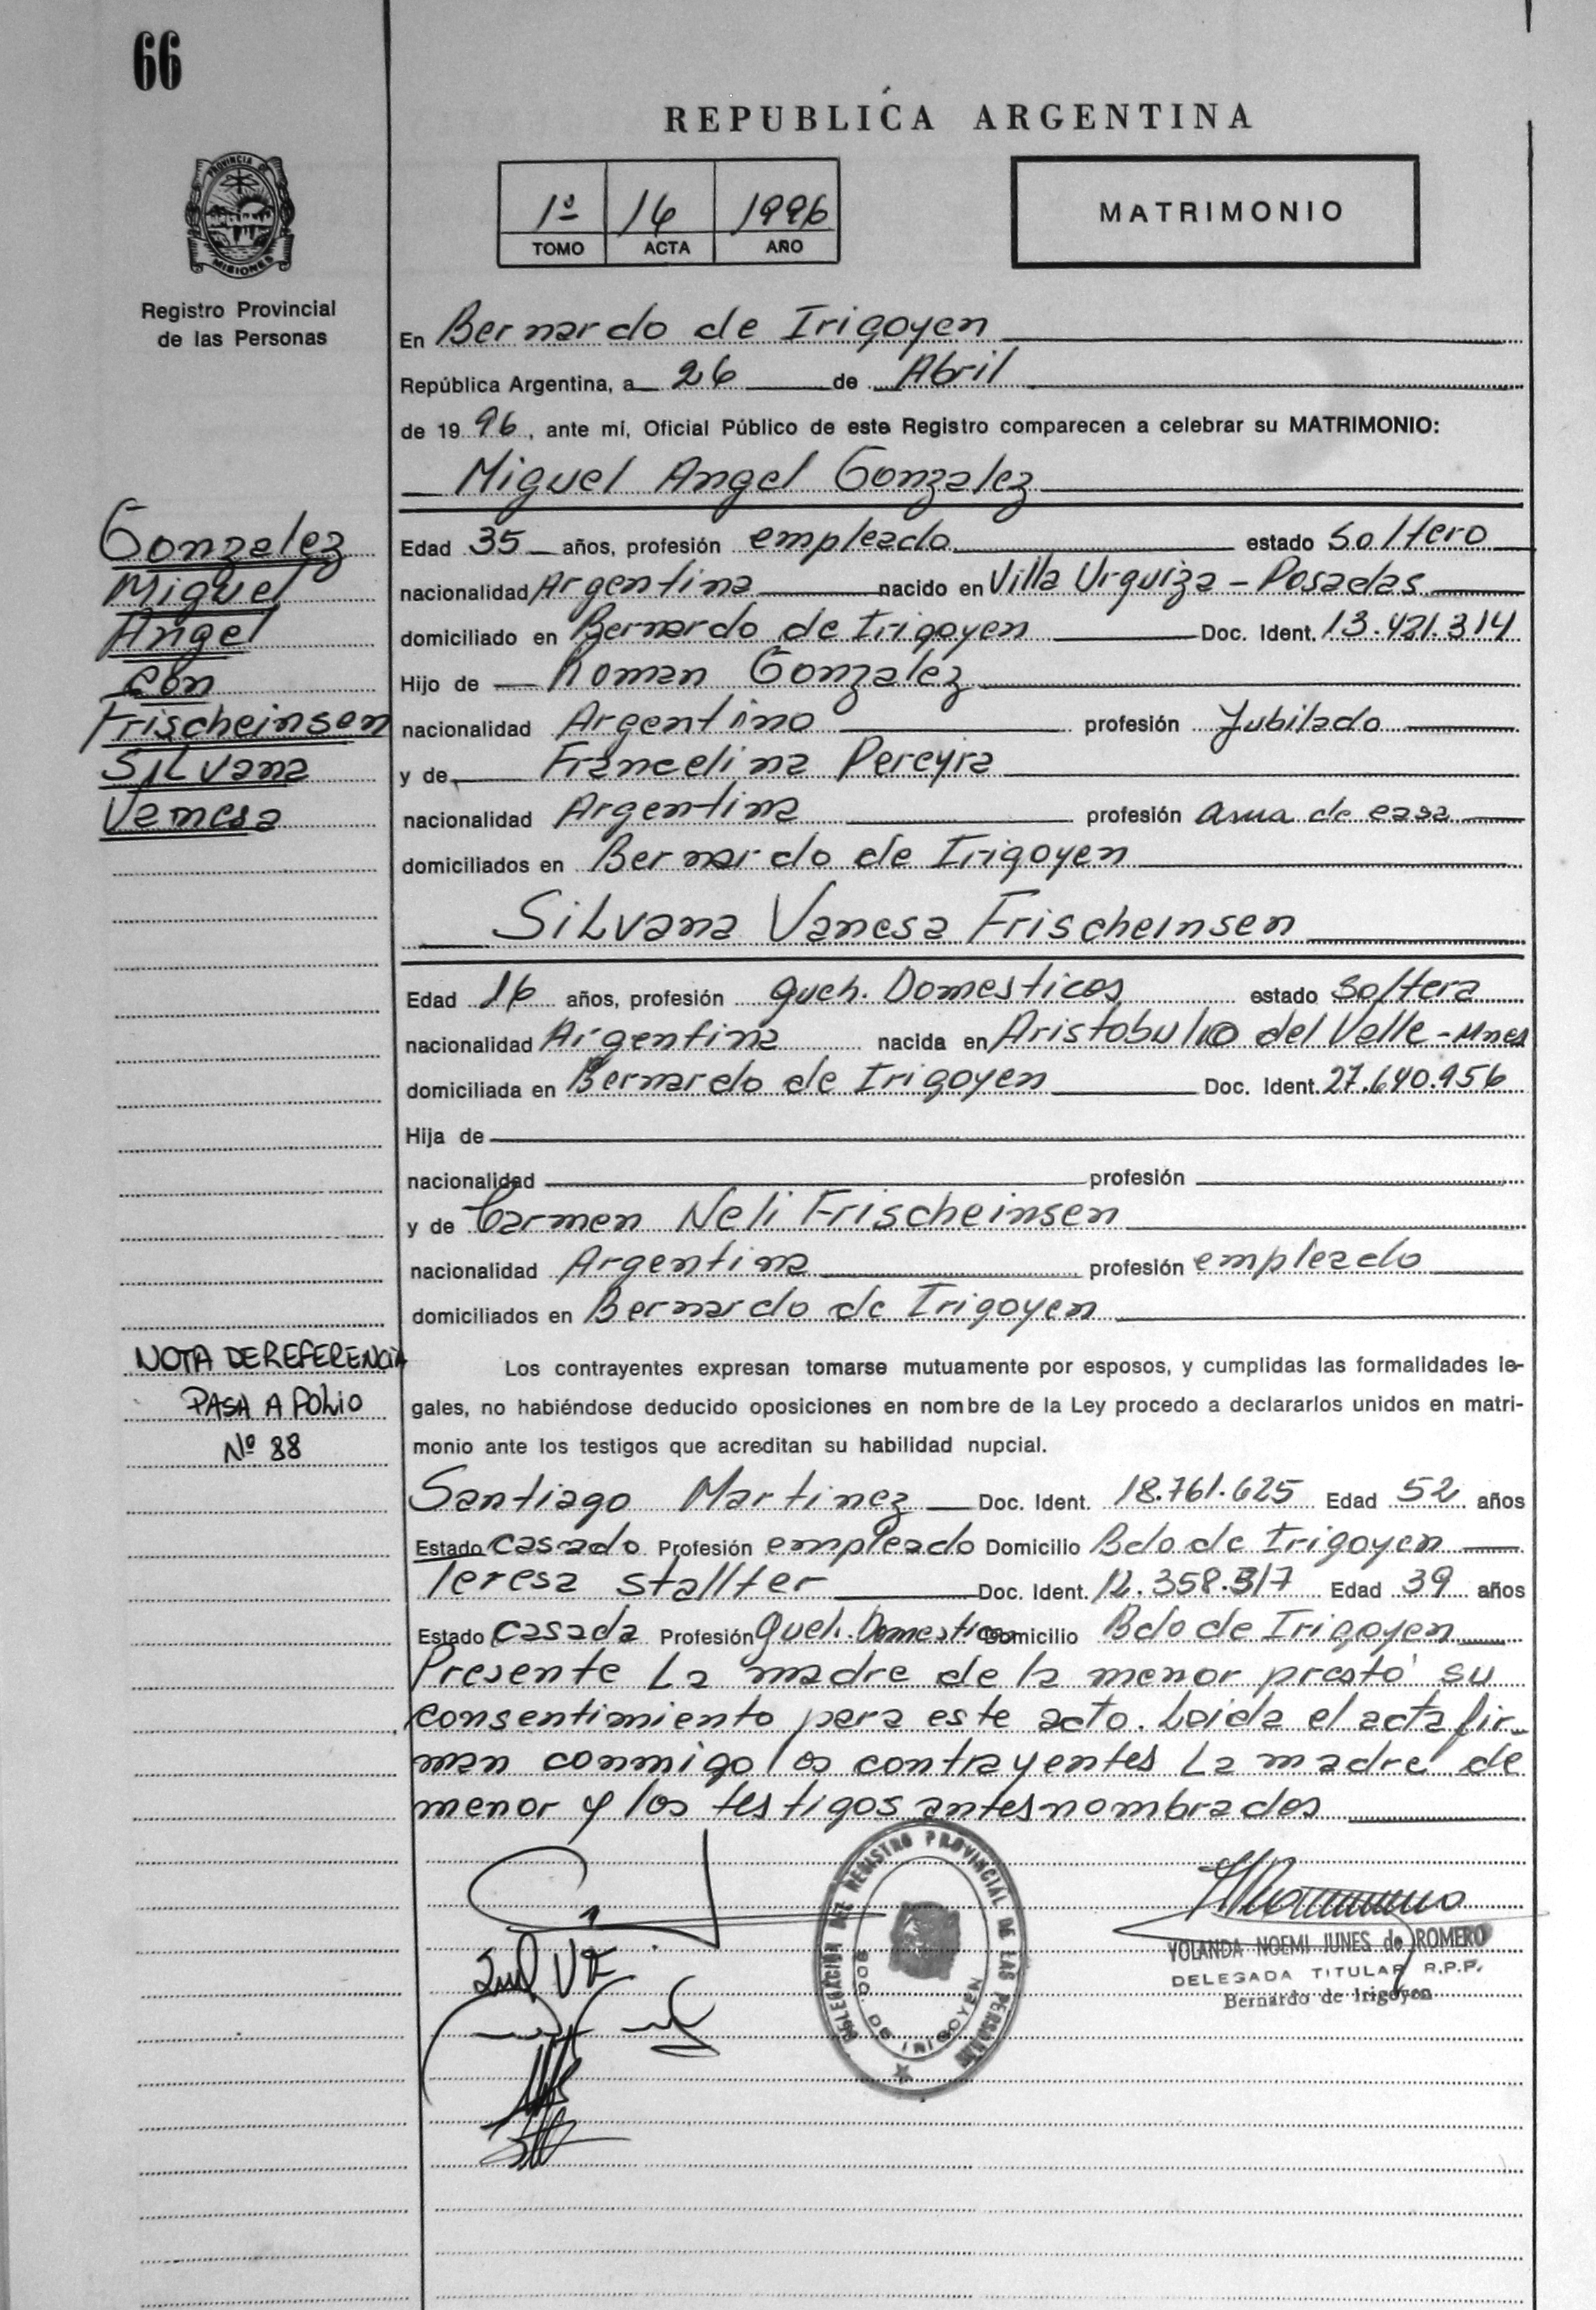 66
REPUBLICA ARGENTINA
PROVINCIA
MISIONES
Registro Provincial
de las Personas
1º 16 1996
TOMO ACTA AÑO
MATRIMONIO
En Bernardo de Irigoyen
República Argentina, a 26 de Abril
de 1996, ante mí, Oficial Público de este Registro comparecen a celebrar su MATRIMONIO:
Miguel Angel Gonzalez
Gonzalez
Miguel
Angel
con
Frischeinsen
Silvana
Vanesa
Edad 35 años, profesión empleado estado Soltero
nacionalidad Argentina nacido en Villa Urquiza - Posadas
domiciliado en Bernardo de Irigoyen Doc. Ident. 13.421.314
Hijo de Roman Gonzalez
nacionalidad Argentino profesión Jubilado
y de Francelina Pereyra
nacionalidad Argentina profesión ama de casa
domiciliados en Bernardo de Irigoyen
Silvana Vanesa Frischeinsen
Edad 16 años, profesión queh. Domesticos estado Soltera
nacionalidad Argentina nacida en Aristobulo del Valle - Mnes
domiciliada en Bernardo de Irigoyen Doc. Ident. 27.640.956
Hija de
nacionalidad profesión
y de Carmen Neli Frischeinsen
nacionalidad Argentina profesión empleado
domiciliados en Bernardo de Irigoyen
NOTA DE REFERENCIA
PASA A FOLIO
Nº 88
Los contrayentes expresan tomarse mutuamente por esposos, y cumplidas las formalidades le-
gales, no habiéndose deducido oposiciones en nombre de la Ley procedo a declararlos unidos en matri-
monio ante los testigos que acreditan su habilidad nupcial.
Santiago Martinez Doc. Ident. 18.761.625 Edad 52 años
Estado casado Profesión empleado Domicilio Bdo de Irigoyen
Teresa Stallter Doc. Ident. 12.358.317 Edad 39 años
Estado casada Profesión Queh. Domesticos Domicilio Bdo de Irigoyen
Presente La madre de la menor prestó su
consentimiento para este acto. Leida el acta fir-
man conmigo los contrayentes La madre de
menor y los testigos antes nombrados
DELEGACION DEL REGISTRO PROVINCIAL DE LAS PERSONAS
BDO. DE IRIGOYEN
YOLANDA NOEMI JUNES de ROMERO
DELEGADA TITULAR R.P.P.
Bernardo de Irigoyen